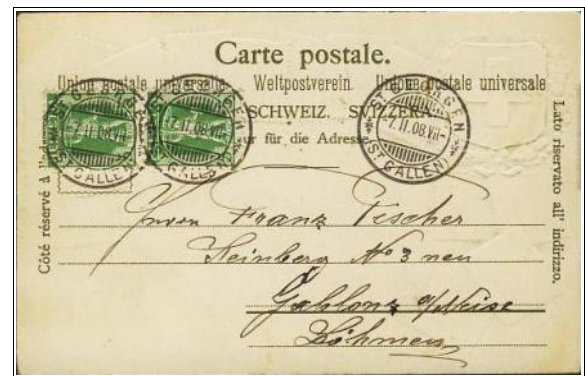 Carte postale.
Union postale universelle. Weltpostverein. Unione postale universale
SCHWEIZ. SVIZZERA.
für die Adresse
Côté réservé à l'adresse
Lato riservato all' indirizzo.
7.II.08.VII-
(ST. GALLEN)
7.II.08.VII-
(ST. GALLEN)
7.II.08.VII-
(ST. GALLEN)
Herrn Franz Fischer
Steinberg No 3 neu
Gablonz a/Neise
Böhmen